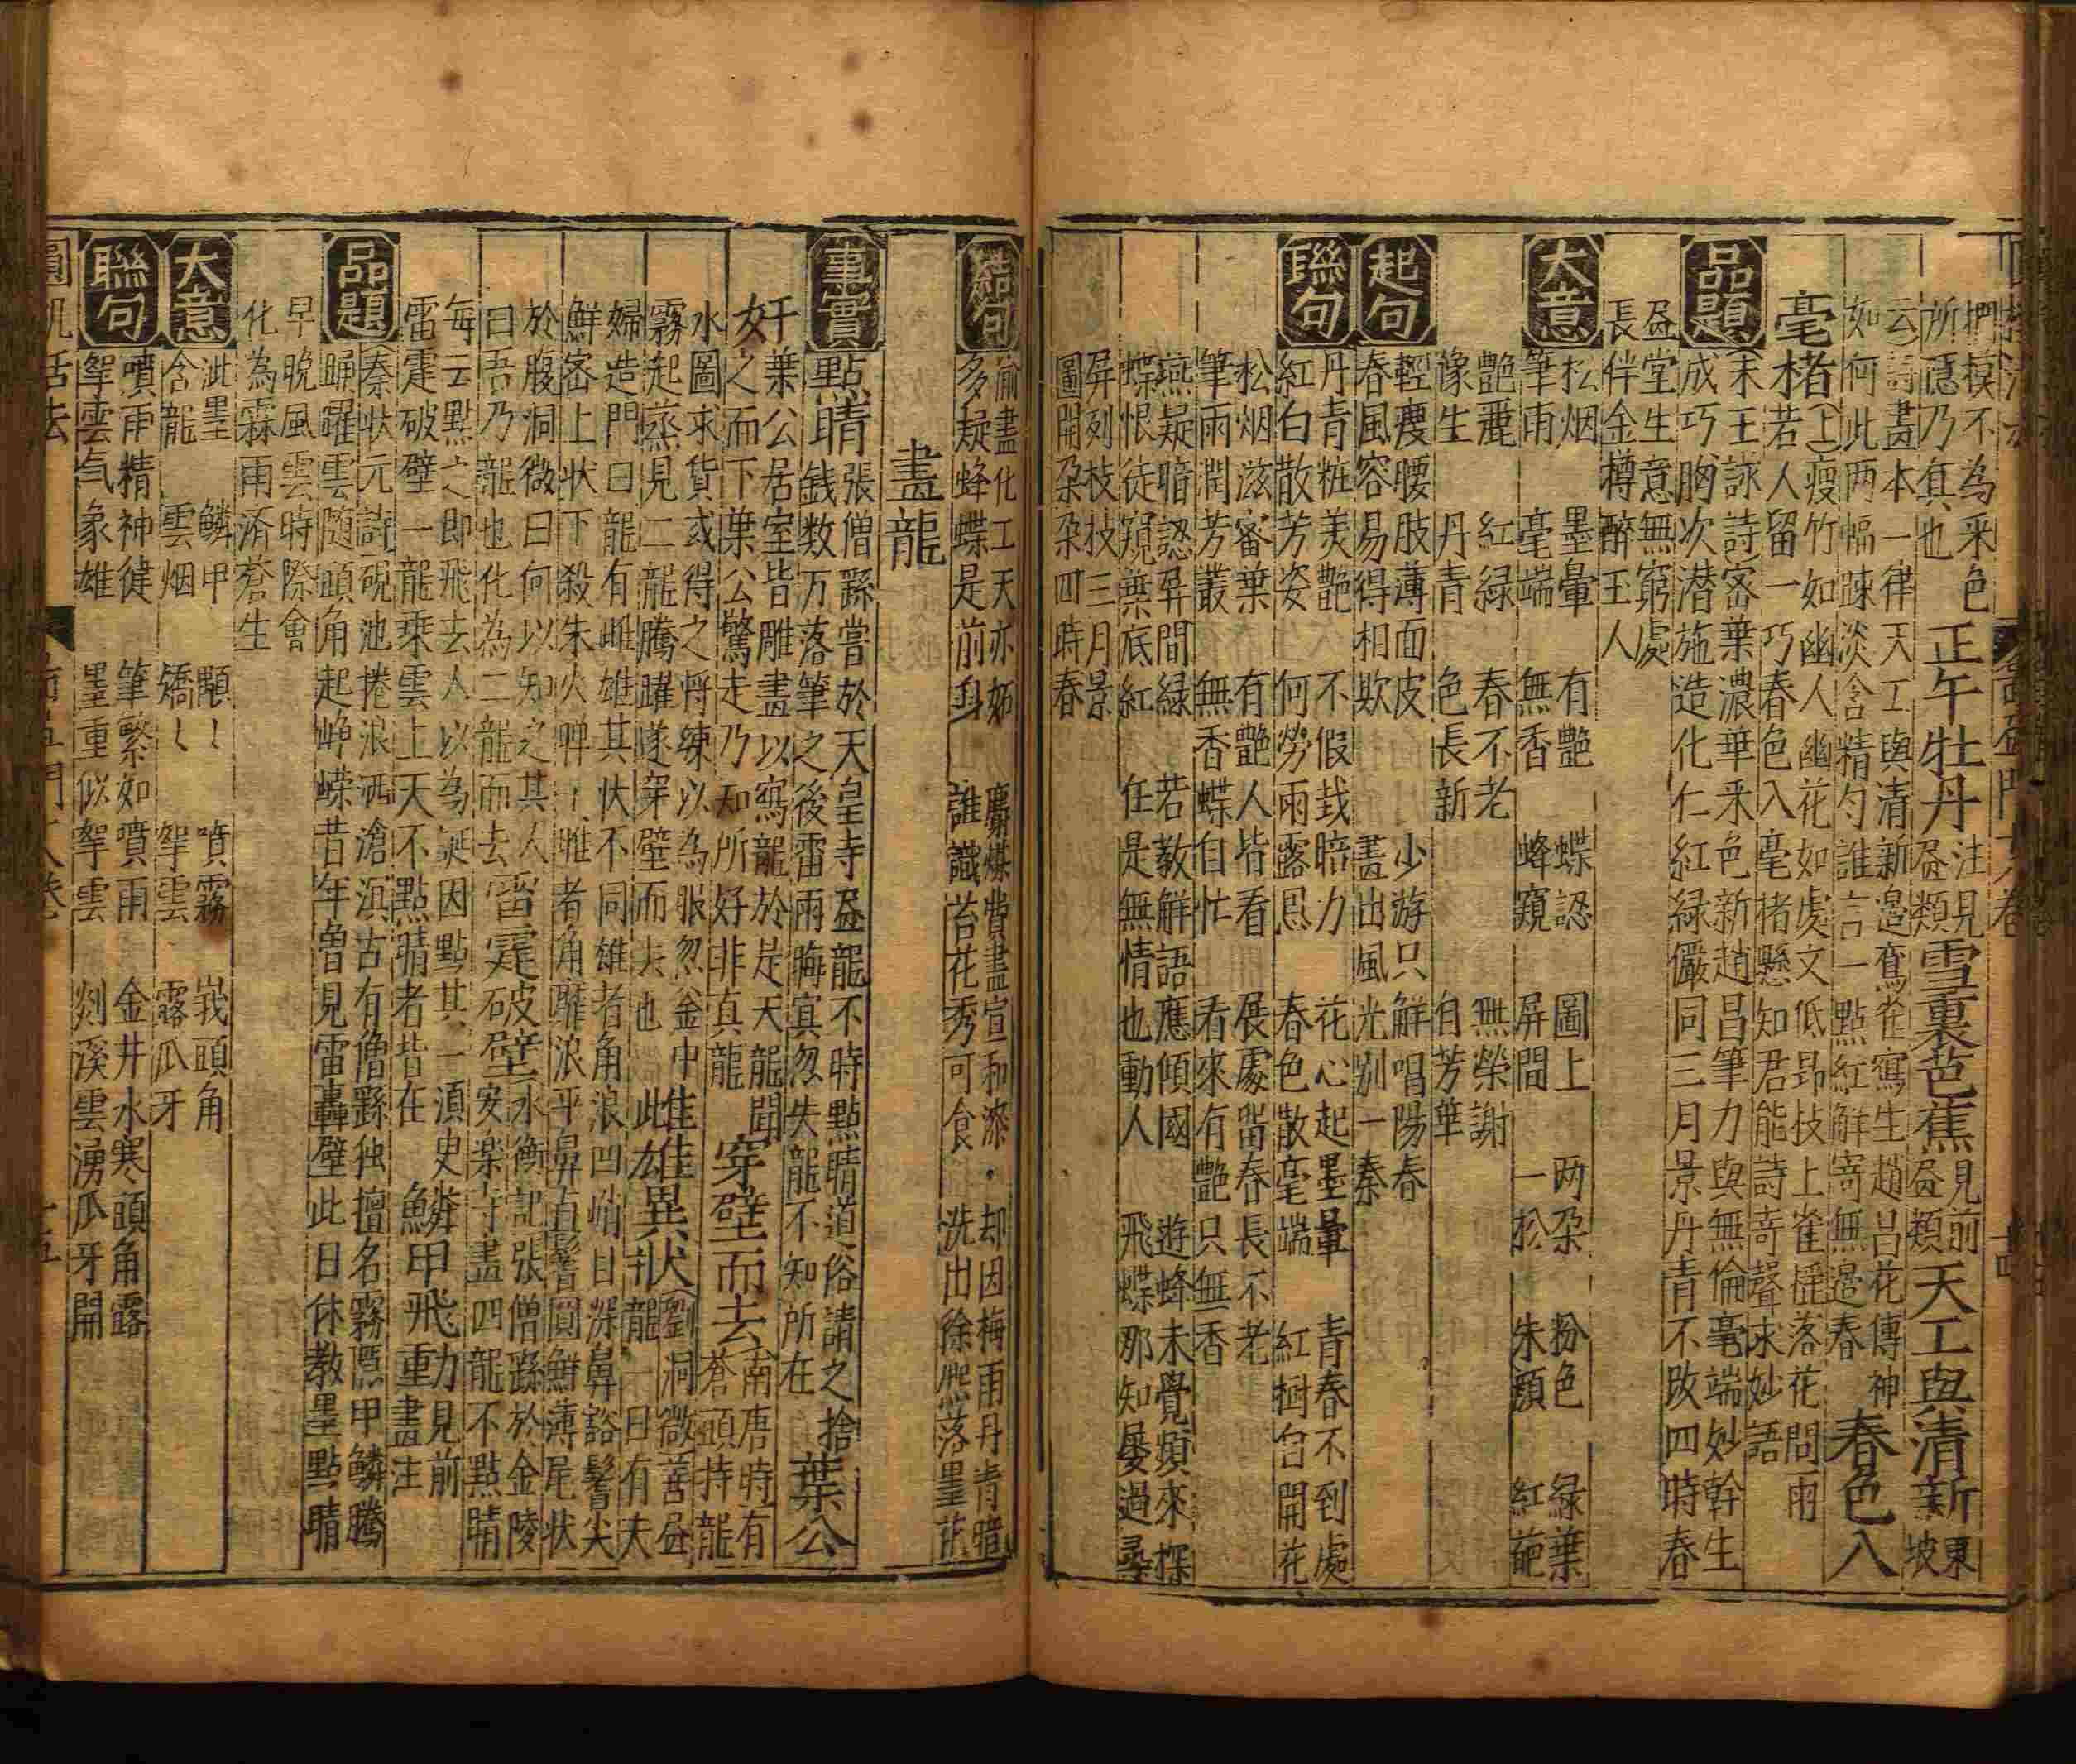 押模不為采色
所隱乃真也
正午牡丹
注見
畫類
雪裏芭蕉
見前
畫類
天工與清新
東
坡
云詩畫本一律天工與清新邉鸞雀寫生趙吕花傳神
如何此两幅踈淡含精勻誰言一點紅解寄無邉春
春色入
毫楮
(上)瘦竹如幽人幽花如處女低昂枝上雀揺落花間雨
若人留一巧春色入毫楮懸知君能詩寄聲求妙語
品題
(宋王詠詩宻葉濃華采色新趙昌筆力與無倫毫端妙幹生
成巧胸次潜施造化仁紅緑儼同三月景丹青不改四時春
畫堂生意無窮處
長伴金樽醉王人
大意
松烟 墨暈 有艷 蝶認 圖上 两朶 粉色 緑葉
筆雨 毫端 無香 蜂窺 屏間 一扵 朱顔 紅葩
艷麗 紅緑 春不老 無榮謝
豫生 丹青 色長新 自芳華
起句
輕㾿腰肢薄面皮 少游只解唱陽春
春風容易得相欺 畫出風光别一秦
聯句
丹青粧羙艷 不假㦲暗力 花心起墨暈 青春不到處
紅白散芳姿 何勞雨露恩 春色散毫端 紅樹自開花
松烟滋宻葉 有艷人皆看 展處留春長不老
筆雨潤芳叢 無香蝶自忙 看來有艷只無香
燕疑暗認屏間緑 若教解語應傾國 遊蜂未覺頻來探
蝶恨徒窺葉底紅 任是無情也動人 飛蝶那知屡過尋
屏列枝枝三月景
圖開朶朶四時春
結句
偷畫化工天亦妬 麝煤費畫宣和漆 却因梅雨丹青暗
多疑蜂蝶是前身 誰讖苔花秀可食 洗出徐熈落墨花
畫龍
事實
點睛
張僧繇嘗於天皇寺畫龍不時點睛道俗請之捨
錢数万落筆之後雷雨晦㝠忽失龍不知所在
葉公
好
葉公居室皆雕畫以寫龍於是天龍聞
之而下葉公驚走乃知所好非真龍
穿壁而去
南唐時有
蒼頭持龍
水圖求貨或得之将練以為服忽金中
霧起蒸見二龍騰躍遂穿壁而去也
雌雄異狀
(劉洞微善畫
龍一日有夫
婦造門曰龍有雌雄其状不同雄者角浪凹峭目深鼻豁鬐尖
鮮宻上状下殺朱火曄曄雌者角靡浪平鼻直鬐圓鮮薄尾状
於腹洞微曰何以知之其人
曰吾乃龍也化為二龍而去
雷霆破壁
(水衡記張僧繇於金陵
安楽寺畫四龍不點睛
每云點之即飛去人以為誕因點其一湏㬰
雷霆破壁一龍乗雲上天不點睛者皆在
鱗甲飛動
見前
畫注
品題
秦状元詩硯池捲浪洒滄溟古有僧繇独擅名霧隱甲鱗騰
踴躍雲随頭角起崢嶸昔年曾見雷轟壁此日休教墨點睛
早晚風雲時際會
化為霖雨済蒼生
大意
泚墨 鱗甲 顒顒 噴霧 峩頭角
含龍 雲烟 矯矯 拏雲 露爪牙
聯句
噴雨精神徤 筆繁如噴雨 金井水寒頭角露
拏雲气象雄 墨重似拏雲 剡溪雲湧爪牙開